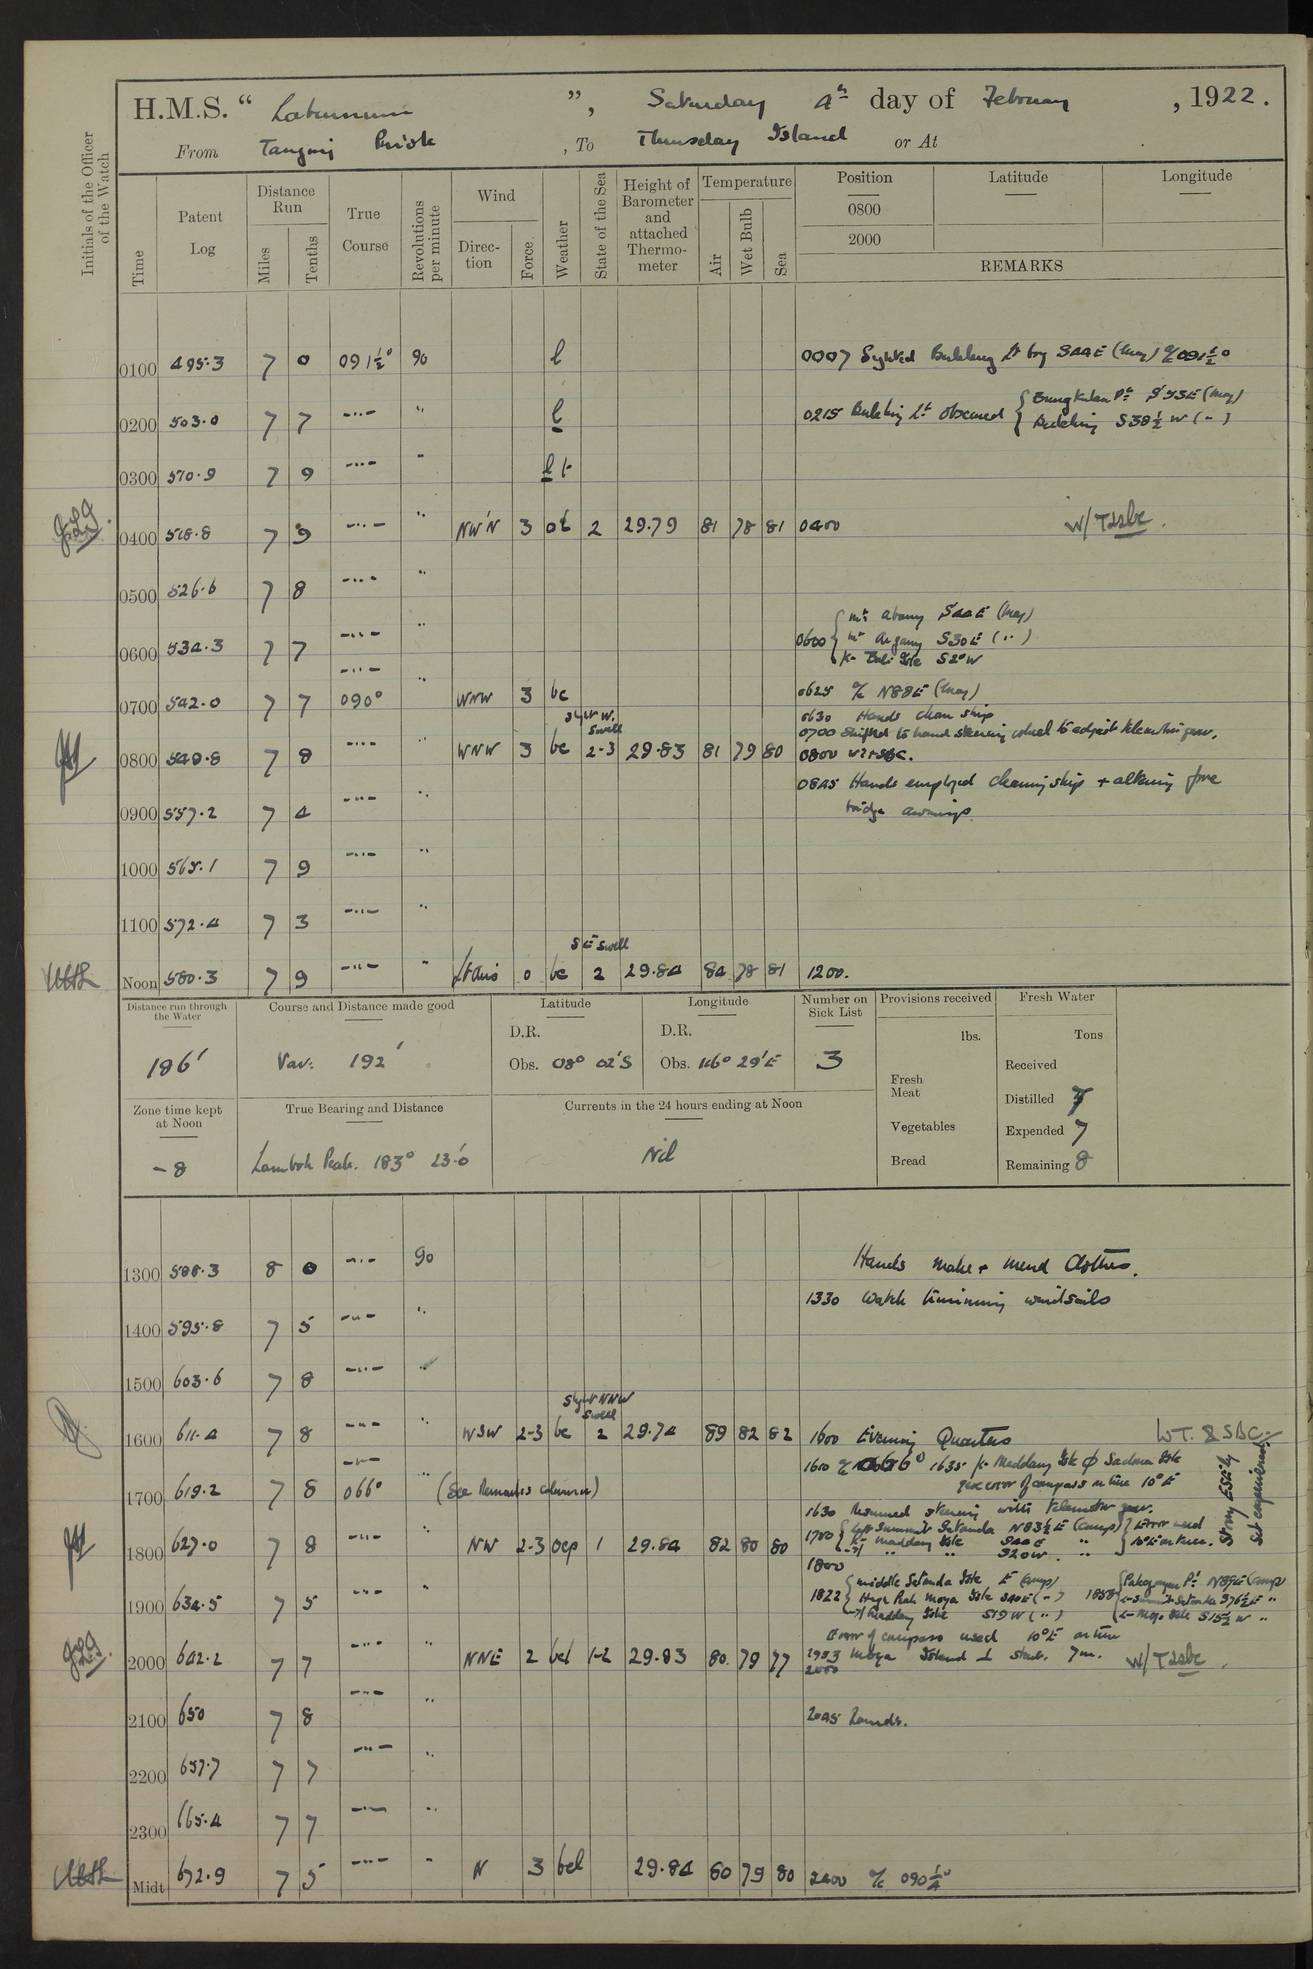 H.M.S. “ Laburnum ”, Saturday 4th day of February , 1922.
From Tanjong Priok , To Thursday Island or At
Initials of the Officer of the Watch
Time
Patent Log
Distance Run
Miles Tenths
True Course
Revolutions per minute
Wind
Direction Force
Weather
State of the Sea
Height of Barometer and attached Thermometer
Temperature
Air Wet Bulb Sea
Position Latitude Longitude
0800
2000
REMARKS
0100 495.3 7 0 091½° 90 b 0007 Sighted Buleleng Lt brg S44E (mag) a/c 091½°
0200 503.0 7 7 -..- " b 0215 Buleleng Lt obscured { Bungkulan Pt S53E (mag)
Buleleng S38½W ( " )
0300 510.9 7 9 -..- "
0400 518.8 7 9 -..- " NW'N 3 2 29.79 81 78 81 0400 W/T & sbc.
0500 526.6 7 8 -..- "
0600 534.3 7 7 -..- " 0600 { Mt Abang S44E (mag)
Mt Agung S30E ( " )
Bali Isle S2°W
-..-
0700 542.0 7 7 090° " WNW 3 bc 0625 a/c N88E (mag)
0630 Hands clean ship
0700 Shifted to hand steering wheel to adjust telemotor gear.
Slight W. Swell
0800 549.8 7 8 -..- " WNW 3 bc 2-3 29.83 81 79 80 0800 WT & SBC.
0845 Hands employed cleaning ship + altering fore
bridge awnings.
0900 557.2 7 4 -..- "
1000 565.1 7 9 -..- "
1100 572.4 7 3 -..- "
SE Swell
Noon 580.3 7 9 -..- " Lt airs 0 bc 2 29.84 84 78 81 1200.
Distance run through the Water
186'
Course and Distance made good
Var: 192'
Latitude
D.R.
Obs. 08° 02'S
Longitude
D.R.
Obs. 116° 29'E
Number on Sick List
3
Provisions received
lbs.
Fresh Meat
Vegetables
Bread
Fresh Water
Tons
Received
Distilled 7
Expended 7
Remaining 8
Zone time kept at Noon
-8
True Bearing and Distance
Lombok Peak. 183° 23'.0
Currents in the 24 hours ending at Noon
Nil
1300 588.3 8 0 -..- 90 Hands make + mend Clothes.
1330 Watch trimming windsails
1400 595.8 7 5 -..- "
1500 603.6 7 8 -..- "
Slight NNW Swell
1600 611.4 7 8 -..- " WSW 2-3 bc 2 29.74 89 82 82 1600 Evening Quarters WT. & SBC.
1610 a/c 066° 1635 Maddang Isle ϕ Sadona Isle
gives error of compass on line 10°E
1700 619.2 7 8 066° " (See Remarks column)
1630 Resumed steering with telemotor gear.
1700 { Left Summit Setanda N83½E (comp) } Error used
Maddang Isle S44E " 10°E on line.
" " S20W "
Strong ESE'ly Set experienced
1800 627.0 7 8 -..- " NW 2-3 ocp 1 29.84 82 80 80 1800
1822 { middle Setanda Isle E (comp)
High Peak Moyo Isle S40E ( " )
Maddang Isle S19W ( " )
1858 { N89E (comp)
Summit Setanda S76½E "
Moyo Isle S15½W "
Error of compass used 10°E on line
1900 634.5 7 5 -..- "
2000 642.2 7 7 -..- " NNE 2 bcl 1-2 29.83 80 79 77 1953 Moyo Island ⊥ starb. 7m.
2000 W/T & sbc.
2100 650 7 8 -..- " 2045 Rounds.
2200 657.7 7 7 -..- "
2300 665.4 7 7 -..- "
Midt 672.9 7 5 -..- " N 3 bcl 29.84 80 79 80 2400 a/c 090¼°